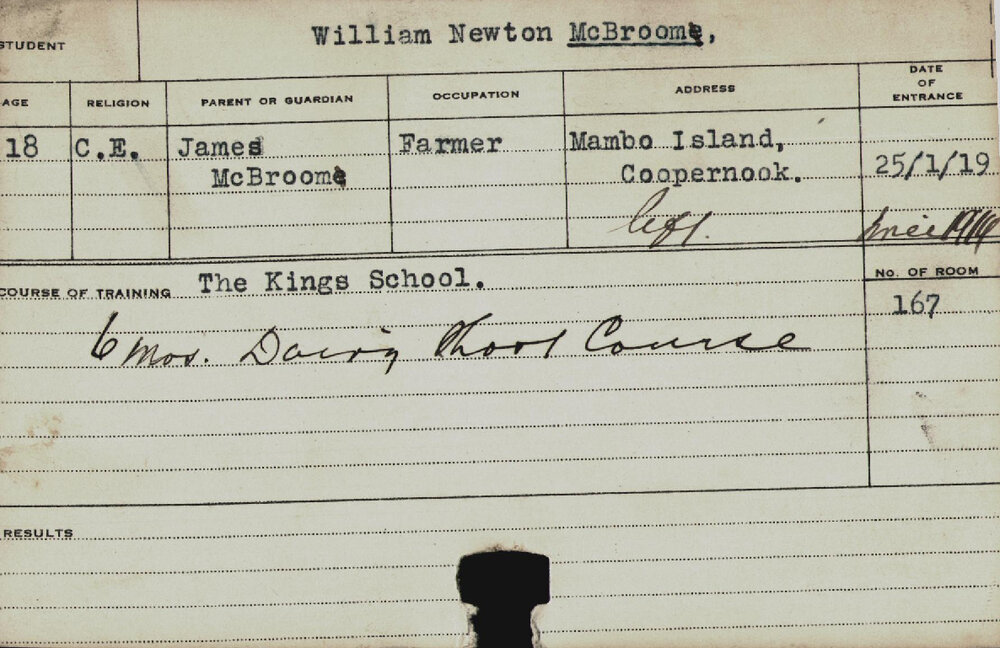 STUDENT William Newton McBroom,
AGE RELIGION PARENT OR GUARDIAN OCCUPATION ADDRESS DATE OF ENTRANCE
18 C.E. James Farmer Mambo Island, 25/1/19
McBroom Coopernook.
left. June 1919
COURSE OF TRAINING The Kings School. No. OF ROOM
167
6 Mos. Dairy Short Course
RESULTS